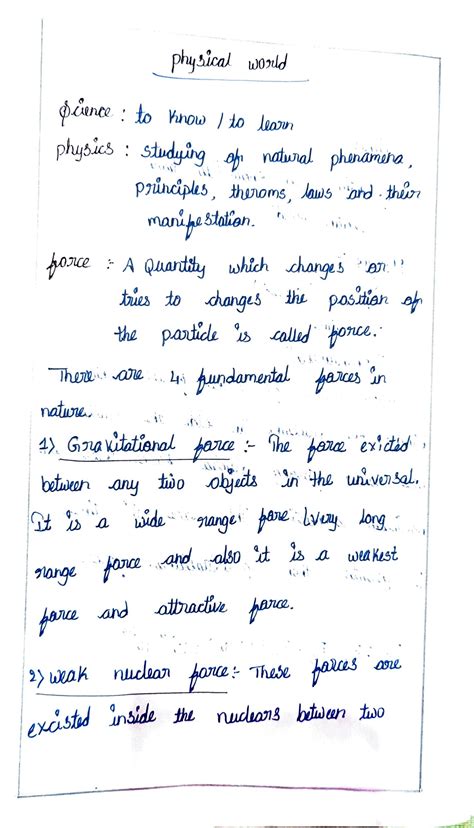 physical world
Science : to know / to learn
physics : studying of natural phenamena,
principles, theroms, laws and their
manifestation.
force :- A Quantity which changes or
tries to changes the position of
the particle is called force.
There are 4 fundamental forces in
nature.
1) Gravitational force :- The force exicted
between any two objects in the universal.
It is a wide range fore (very long
range force and also it is a weakest
force and attractive force.
2) weak nuclear force :- These forces are
excisted inside the nuclears between two